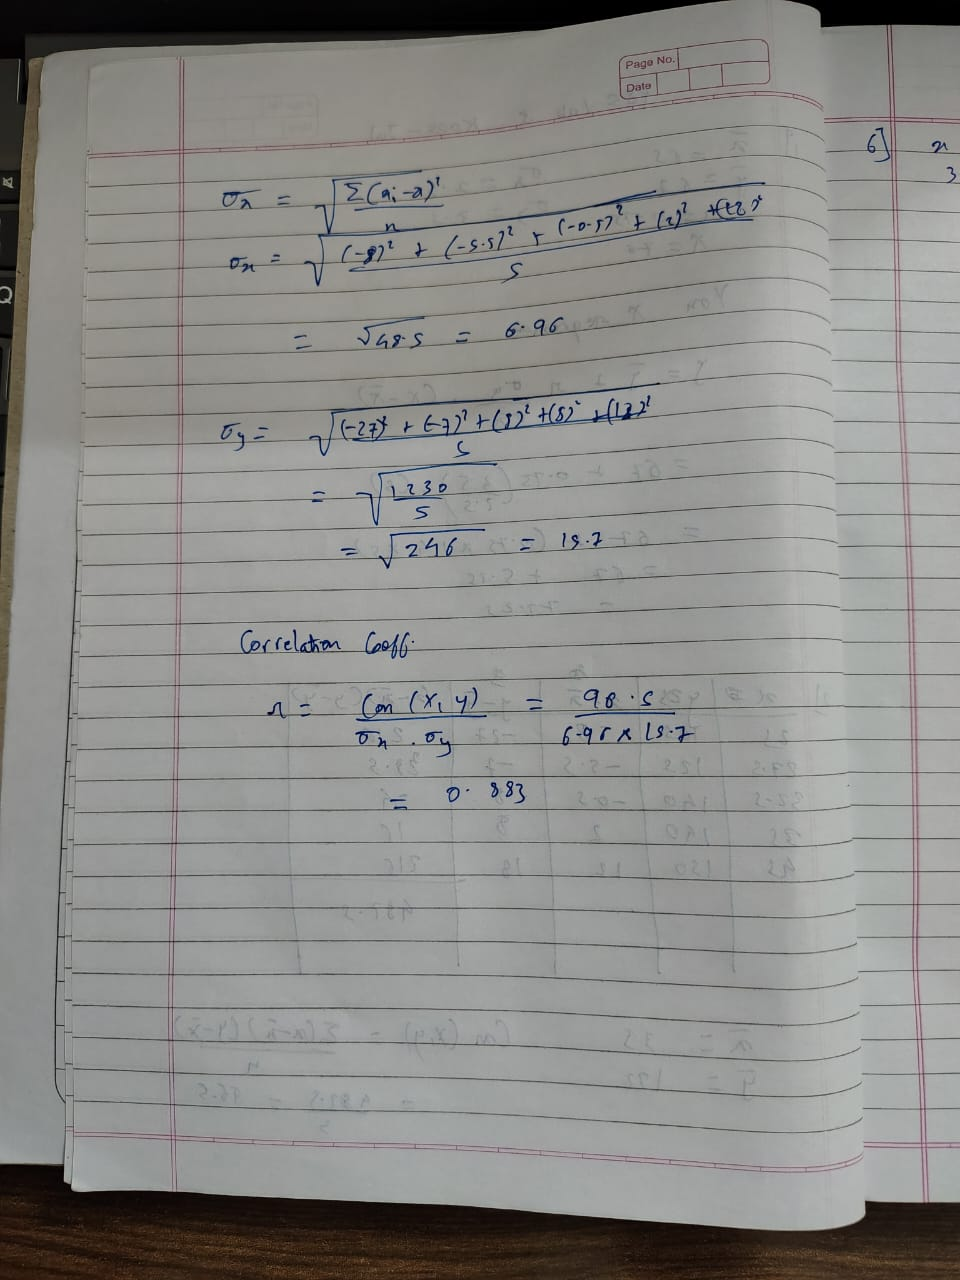 Page No.
Date
σx = √Σ(xi-x)²/n
σx = √(-8)² + (-5.5)² + (-0.5)² + (2)² + (12)²/5
= √48.5 = 6.96
σy = √(-27)² + (-7)² + (8)² + (8)² + (18)²/5
= √1230/5
= √246 = 15.7
Correlation Coeff.
r = Cov (x, y)/σx . σy = 98.5/6.96 x 15.7
= 0.883
6] x
3